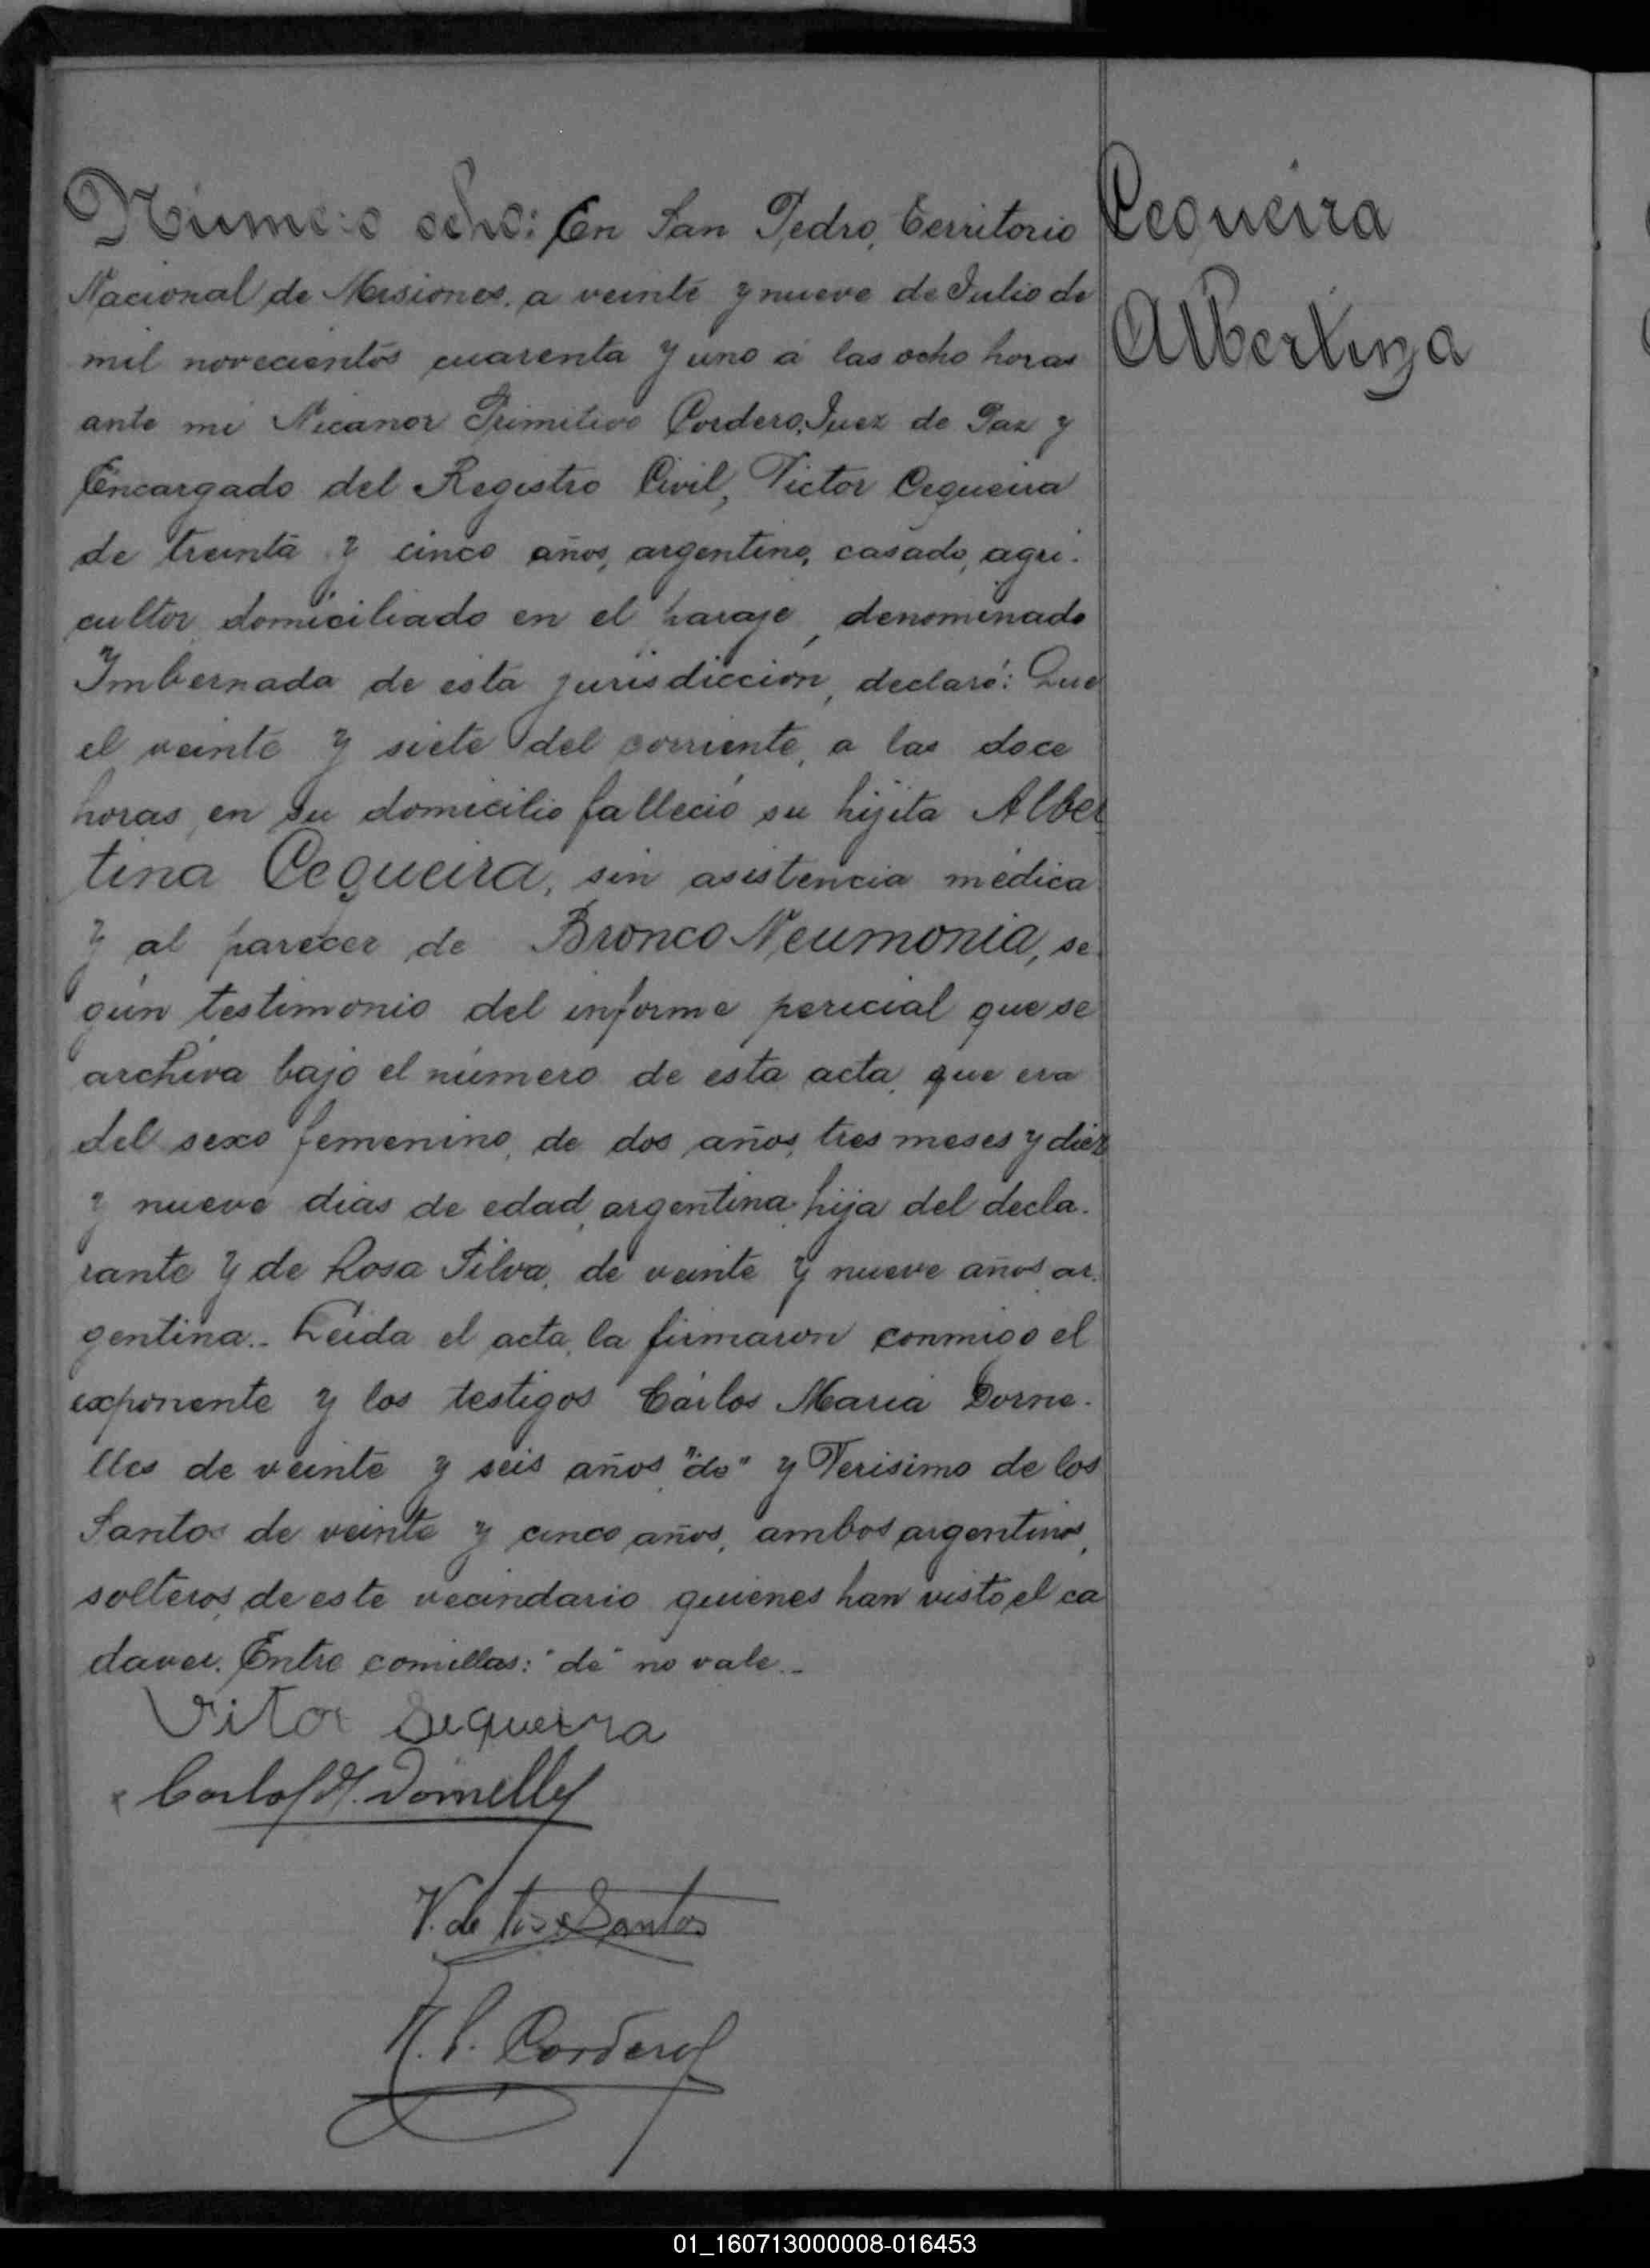 Número ocho: En San Pedro, Territorio
Cequeira
Albertina
Nacional de Misiones, a veinte y nueve de Julio de
mil novecientos cuarenta y uno a las ocho horas
ante mi Nicanor Primitivo Cordero, Juez de Paz y
Encargado del Registro Civil, Victor Cequeira
de treinta y cinco años, argentino, casado, agri-
cultor, domiciliado en el paraje, denominado
Imbernada de esta jurisdicción, declaró: Que
el veinte y siete del corriente, a las doce
horas, en su domicilio falleció su hijita Alber
tina Cequeira, sin asistencia médica
y al parecer de Bronco Neumonia, se-
gún testimonio del informe pericial que se
archiva bajo el número de esta acta, que era
del sexo femenino, de dos años, tres meses y diez
y nueve dias de edad, argentina, hija del decla-
rante y de Rosa Silva, de veinte y nueve años, ar-
gentina.- Leida el acta, la firmaron conmigo el
exponente y los testigos Cárlos Maria Dorne-
lles de veinte y seis años, "de" y Verisimo de los
Santos de veinte y cinco años, ambos argentinos,
solteros, de este vecindario quienes han visto el ca
daver. Entre comillas: "de" no vale.-
Vitor Sequeira
Carlos M. Dornelles
V. de los Santos
N. P. Cordero
01_160713000008-016453